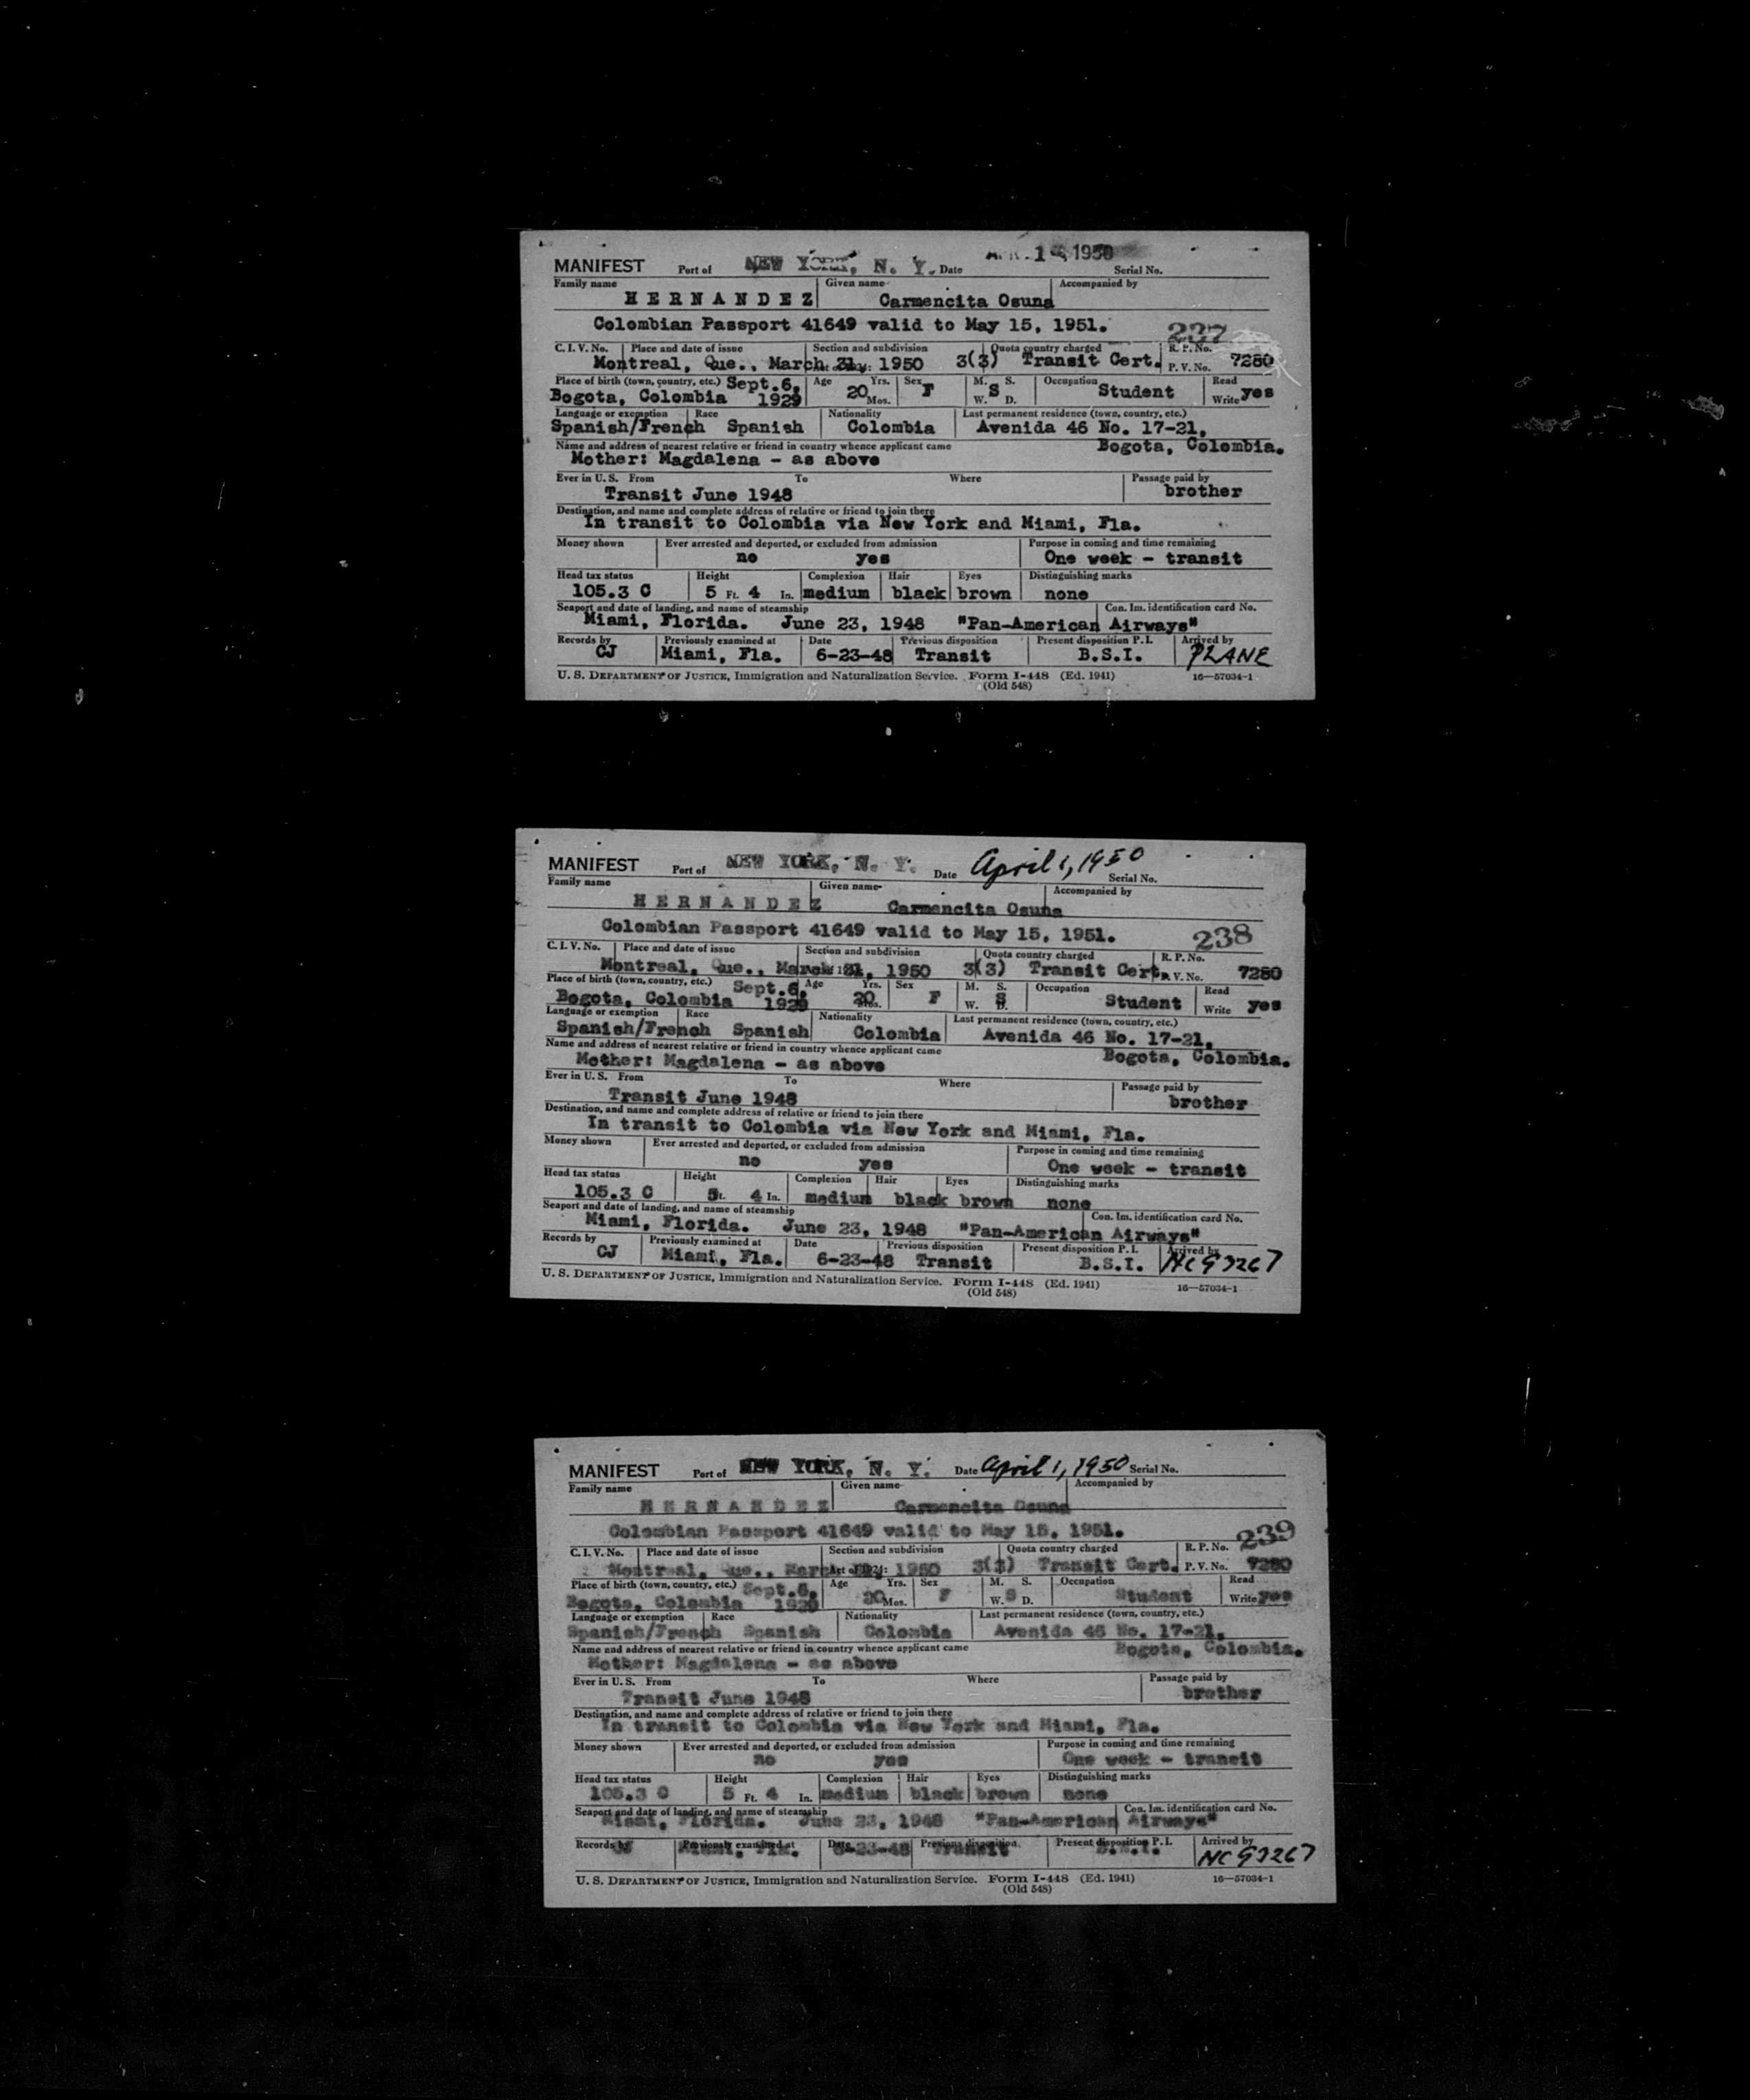 MANIFEST Port of NEW YORK, N. Y. Date APR. 1 1950 Serial No.
Family name Given name Accompanied by
HERNANDEZ Carmencita Osuna
Colombian Passport 41649 valid to May 15, 1951. 237
C. I. V. No. Place and date of issue Section and subdivision Quota country charged R. P. No.
Montreal, Que., March 31, 1950 3(3) Transit Cert. P. V. No. 7280
Place of birth (town, country, etc.) Sept.6, Age 20 Yrs. Sex F M. S. S Occupation Student Read yes
Bogota, Colombia 1929 Mos. W. D. Write
Language or exemption Race Nationality Last permanent residence (town, country, etc.)
Spanish/French Spanish Colombia Avenida 46 No. 17-21,
Name and address of nearest relative or friend in country whence applicant came Bogota, Colombia.
Mother: Magdalena - as above
Ever in U. S. From To Where Passage paid by
Transit June 1948 brother
Destination, and name and complete address of relative or friend to join there
In transit to Colombia via New York and Miami, Fla.
Money shown Ever arrested and deported, or excluded from admission Purpose in coming and time remaining
no yes One week - transit
Head tax status Height Complexion Hair Eyes Distinguishing marks
105.3 C 5 Ft. 4 In. medium black brown none
Seaport and date of landing, and name of steamship Con. Im. identification card No.
Miami, Florida. June 23, 1948 "Pan-American Airways"
Records by Previously examined at Date Previous disposition Present disposition P. I. Arrived by
CJ Miami, Fla. 6-23-48 Transit B.S.I. PLANE
U. S. DEPARTMENT OF JUSTICE, Immigration and Naturalization Service. Form I-448 (Ed. 1941) 16—57034-1
(Old 548)
MANIFEST Port of NEW YORK, N. Y. Date April 1, 1950 Serial No.
Family name Given name Accompanied by
HERNANDEZ Carmencita Osuna
Colombian Passport 41649 valid to May 15, 1951. 238
C. I. V. No. Place and date of issue Section and subdivision Quota country charged R. P. No.
Montreal, Que., March 31, 1950 3(3) Transit Cert. P. V. No. 7280
Place of birth (town, country, etc.) Sept.6, Age Yrs. Sex M. S. Occupation Read
Bogota, Colombia 1929 20 Mos. F W. S D. Student Write yes
Language or exemption Race Nationality Last permanent residence (town, country, etc.)
Spanish/French Spanish Colombia Avenida 46 No. 17-21,
Name and address of nearest relative or friend in country whence applicant came Bogota, Colombia.
Mother: Magdalena - as above
Ever in U. S. From To Where Passage paid by
Transit June 1948 brother
Destination, and name and complete address of relative or friend to join there
In transit to Colombia via New York and Miami, Fla.
Money shown Ever arrested and deported, or excluded from admission Purpose in coming and time remaining
no yes One week - transit
Head tax status Height Complexion Hair Eyes Distinguishing marks
105.3 C 5 Ft. 4 In. medium black brown none
Seaport and date of landing, and name of steamship Con. Im. identification card No.
Miami, Florida. June 23, 1948 "Pan-American Airways"
Records by Previously examined at Date Previous disposition Present disposition P. I. Arrived by
CJ Miami, Fla. 6-23-48 Transit B.S.I. NC93267
U. S. DEPARTMENT OF JUSTICE, Immigration and Naturalization Service. Form I-448 (Ed. 1941) 16—57034-1
(Old 548)
MANIFEST Port of NEW YORK, N. Y. Date April 1, 1950 Serial No.
Family name Given name Accompanied by
HERNANDEZ Carmencita Osuna
Colombian Passport 41649 valid to May 15, 1951. 239
C. I. V. No. Place and date of issue Section and subdivision Quota country charged R. P. No.
Montreal, Que., March 31, 1950 3(3) Transit Cert. P. V. No. 7280
Place of birth (town, country, etc.) Sept.6, Age Yrs. Sex M. S. Occupation Read
Bogota, Colombia 1929 20 Mos. F W. S D. Student Write yes
Language or exemption Race Nationality Last permanent residence (town, country, etc.)
Spanish/French Spanish Colombia Avenida 46 No. 17-21,
Name and address of nearest relative or friend in country whence applicant came Bogota, Colombia.
Mother: Magdalena - as above
Ever in U. S. From To Where Passage paid by
Transit June 1948 brother
Destination, and name and complete address of relative or friend to join there
In transit to Colombia via New York and Miami, Fla.
Money shown Ever arrested and deported, or excluded from admission Purpose in coming and time remaining
no yes One week - transit
Head tax status Height Complexion Hair Eyes Distinguishing marks
105.3 C 5 Ft. 4 In. medium black brown none
Seaport and date of landing, and name of steamship Con. Im. identification card No.
Miami, Florida. June 23, 1948 "Pan-American Airways"
Records by Previously examined at Date Previous disposition Present disposition P. I. Arrived by
CJ Miami, Fla. 6-23-48 Transit B.S.I. NC93267
U. S. DEPARTMENT OF JUSTICE, Immigration and Naturalization Service. Form I-448 (Ed. 1941) 16—57034-1
(Old 548)